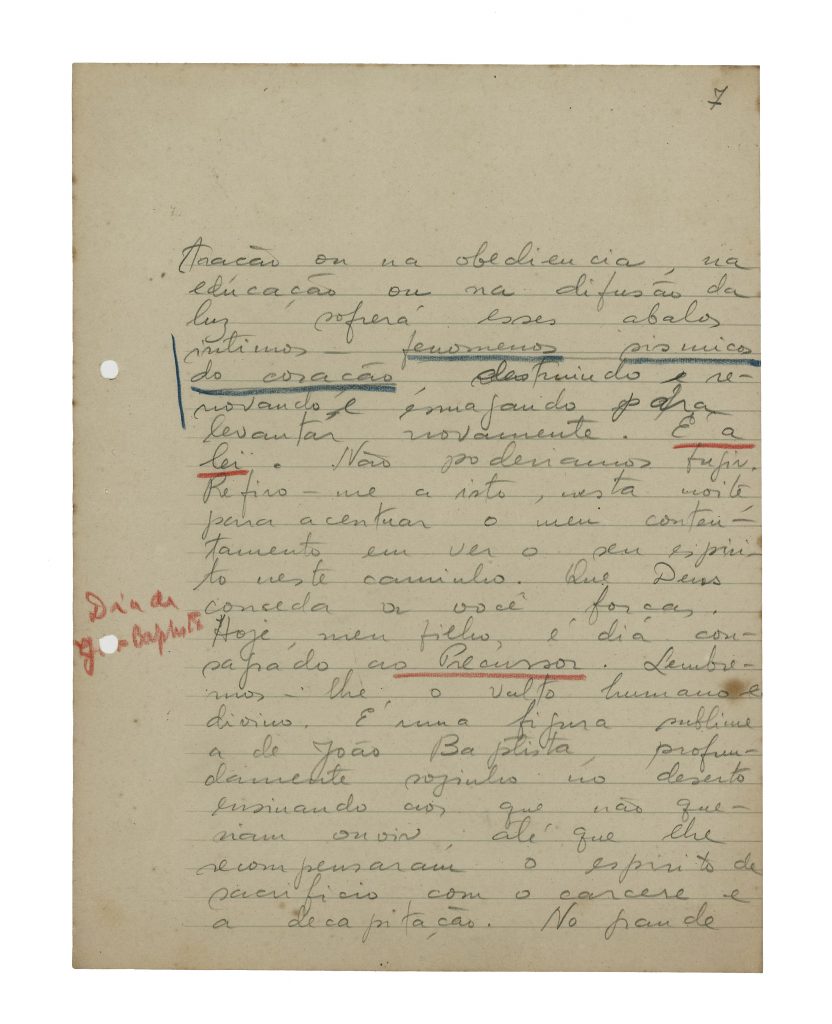 7
tração ou na obediencia, na
educação ou na difusão da
luz, sofrerá esses abalos
intimos — fenomenos sismicos
do coração destruindo e re-
novando, e esmagando para
levantar novamente. É a
lei. Não poderiamos fugir.
Refiro-me a isto, nesta noite
para acentuar o meu conten-
tamento em ver o seu espiri-
to neste caminho. Que Deus
conceda a você forças.
Dia de
Baptista
Hoje, meu filho, é dia con-
sagrado ao Precursor. Lembre-
mos-lhe, o vulto humano e
divino. É uma figura sublime
a de João Baptista, profun-
damente sozinho no deserto
ensinando aos que não que-
riam ouvir até que lhe
recompensaram o espirito de
sacrificio com o carcere e
a decapitação. No grande